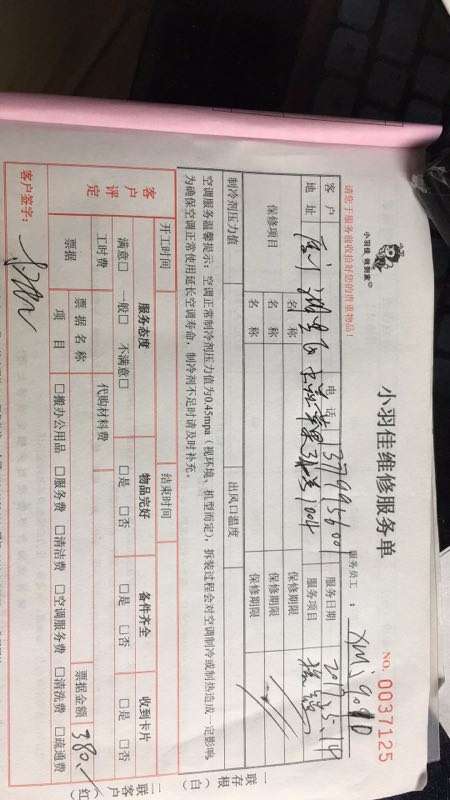 小羽佳 收到家
小羽佳维修服务单
NO. 0037125
请您于服务前收捡好您的贵重物品!
服务员工: XMJ9090
客户
电话
服务日期
地址
服务项目
保修项目
名称
保修期限
名称
保修期限
名称
保修期限
制冷剂压力值
出风口温度
空调服务温馨提示:空调正常制冷剂压力值为0.45mpa(视环境、机型而定),拆装过程会对空调制冷或制热造成一定影响,
为确保空调正常使用延长空调寿命,制冷剂不足时请及时补充。
开工时间
结束时间
客户评定
服务态度
物品完好
备件齐全
收到卡片
满意□ 一般□ 不满意□
□是 □否
□是 □否
□是 □否
工时费
代购材料费
票据
票据名称
票据金额
380.
项目
□搬办公用品 □服务费 □清洁费 □空调服务费 □清洗费 □疏通费
客户签字:
一联存根(白)
二联客户(红)